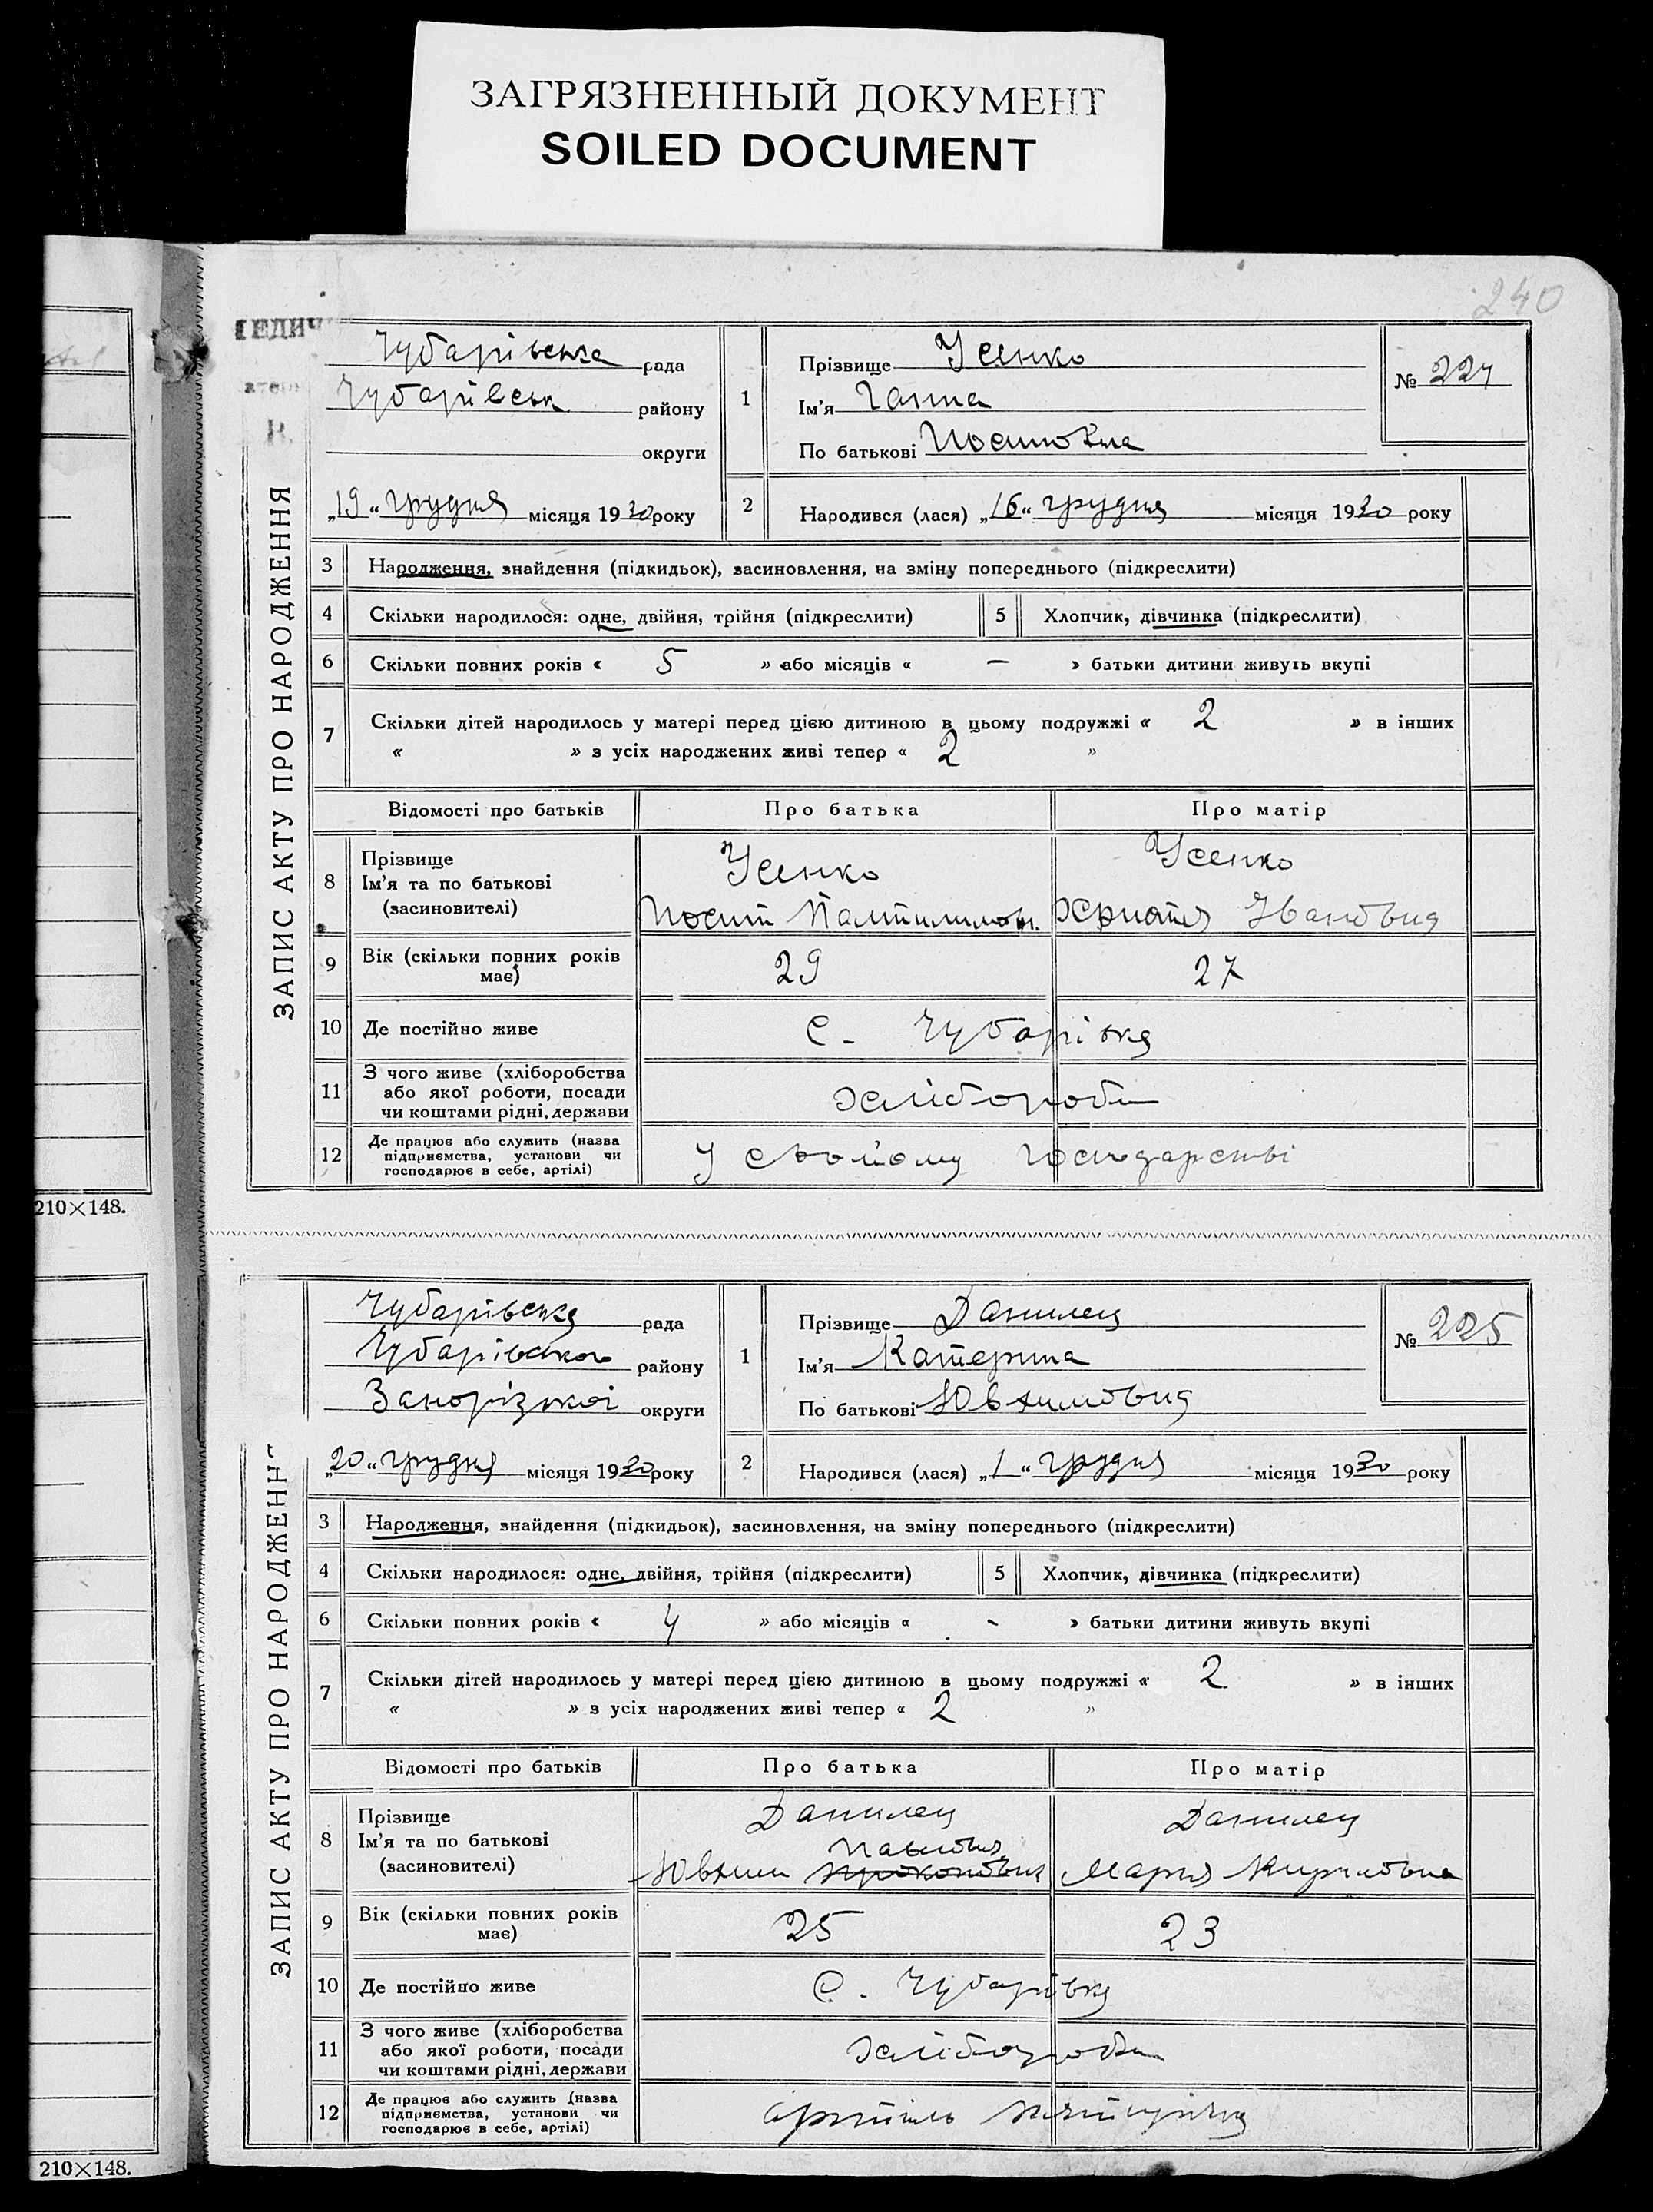 ЗАГРЯЗНЕННЫЙ ДОКУМЕНТ
SOILED DOCUMENT
240
ЗАПИС АКТУ ПРО НАРОДЖЕННЯ
Чубарівська рада
Чубарівськ району
округи
„19“ грудня місяця 1930 року
1
Прізвище Усенко
Ім'я Ганна
По батькові
№ 224
2
Народився (лася) „16“ грудня місяця 1930 року
3 Народження, знайдення (підкидьок), засиновлення, на зміну попереднього (підкреслити)
4 Скільки народилося: одне, двійня, трійня (підкреслити) 5 Хлопчик, дівчинка (підкреслити)
6 Скільки повних років « 5 » або місяців « — » батьки дитини живуть вкупі
7 Скільки дітей народилось у матері перед цією дитиною в цьому подружжі « 2 » в інших
« » з усіх народжених живі тепер « 2 »
Відомості про батьків Про батька Про матір
8 Прізвище
Ім'я та по батькові
(засиновителі)
Усенко Усенко
Івановна
9 Вік (скільки повних років
має)
29 27
10 Де постійно живе с. Чубарівка
11 З чого живе (хліборобства
або якої роботи, посади
чи коштами рідні, держави
хлібороби
12 Де працює або служить (назва
підприємства, установи чи
господарює в себе, артілі)
У свойому господарстві
210×148.
ЗАПИС АКТУ ПРО НАРОДЖЕНН
Чубарівська рада
Чубарівського району
Запорізької округи
„20“ грудня місяця 1930 року
1
Прізвище Данилец
Ім'я Катерина
По батькові Ювхимовна
№ 225
2
Народився (лася) „1“ грудня місяця 1930 року
3 Народження, знайдення (підкидьок), засиновлення, на зміну попереднього (підкреслити)
4 Скільки народилося: одне, двійня, трійня (підкреслити) 5 Хлопчик, дівчинка (підкреслити)
6 Скільки повних років « 4 » або місяців « - » батьки дитини живуть вкупі
7 Скільки дітей народилось у матері перед цією дитиною в цьому подружжі « 2 » в інших
« » з усіх народжених живі тепер « 2 »
Відомості про батьків Про батька Про матір
8 Прізвище
Ім'я та по батькові
(засиновителі)
Данилец Данилец
Ювхим Мария Кириловна
9 Вік (скільки повних років
має)
25 23
10 Де постійно живе с. Чубарівка
11 З чого живе (хліборобства
або якої роботи, посади
чи коштами рідні, держави
хлібороби
12 Де працює або служить (назва
підприємства, установи чи
господарює в себе, артілі)
артіль
210×148.